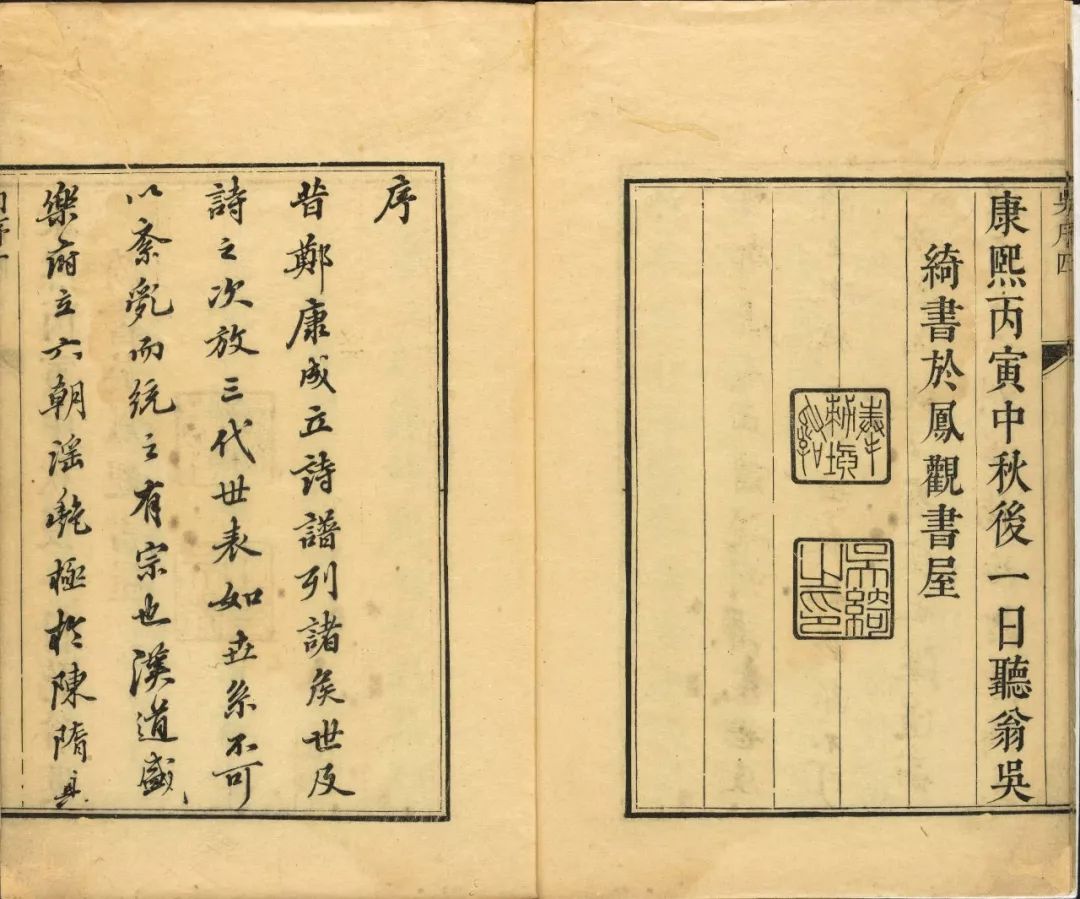 吳序四
康熙丙寅中秋後一日聽翁吳
綺書於鳳觀書屋
吳綺之印
序
昔鄭康成立詩譜列諸侯世及
詩之次放三代世表如世系不可
以紊亂而統之有宗也漢道盛
樂府立六朝謡艷極於陳隋具